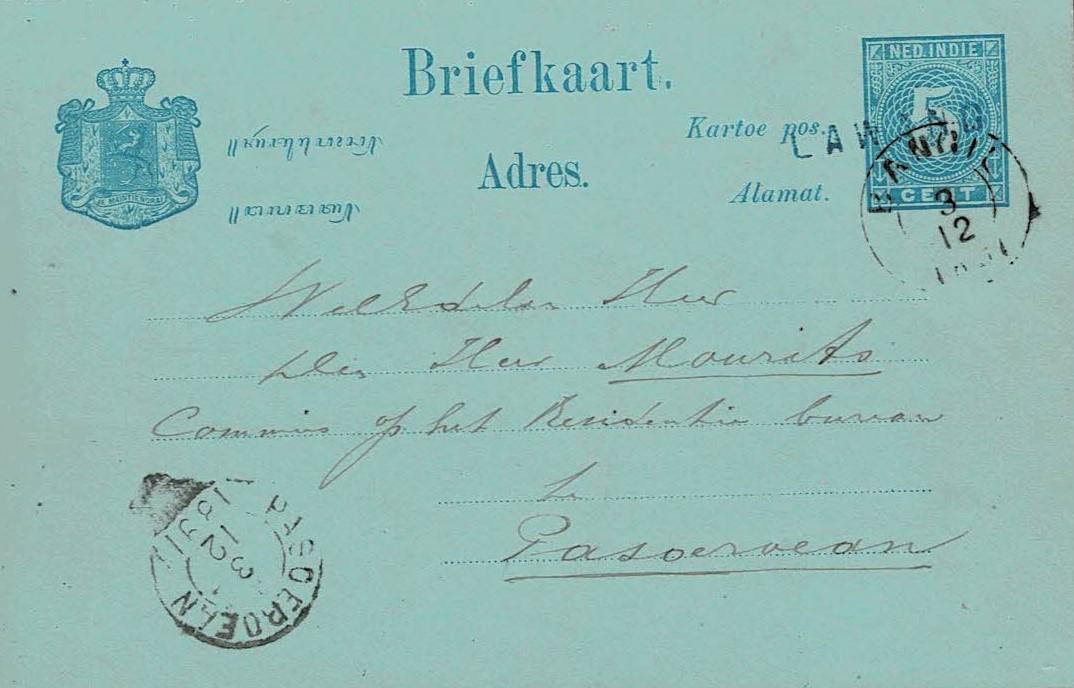 Briefkaart.
NED. INDIE
5
CENT
Kartoe pos.
Adres.
Alamat.
JE MAINTIENDRAI
LAWANG
BANGIL
3
12
WelEdelen Heer
Den Heer Mourits
Commies op het Residentie bureau
te
Pasoeroean
PASOEROEAN
3
12